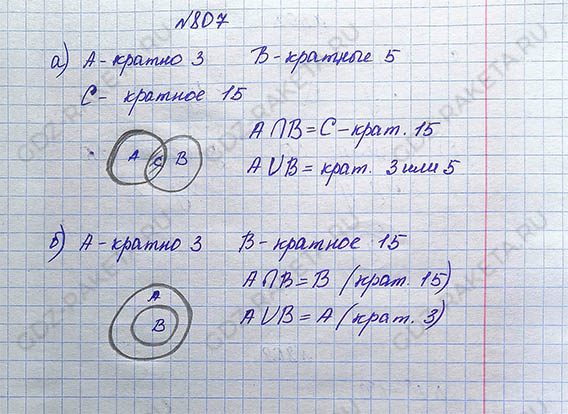 №807
а) А - кратно 3 В - кратные 5
С - кратное 15
А С В
А∩В = С - крат. 15
А∪В = крат. 3 или 5
б) А - кратно 3 В - кратное 15
А∩В = В (крат. 15)
А∪В = А (крат. 3)
А
В
GDZ-RAKETA.RU